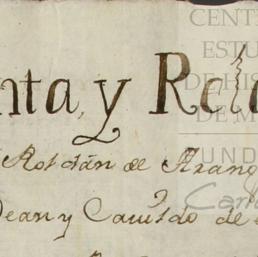 CENT
ESTU
DE HIS
DE M
nta, y Rela
Roldán de Arang
UND
Dean y Cavildo de